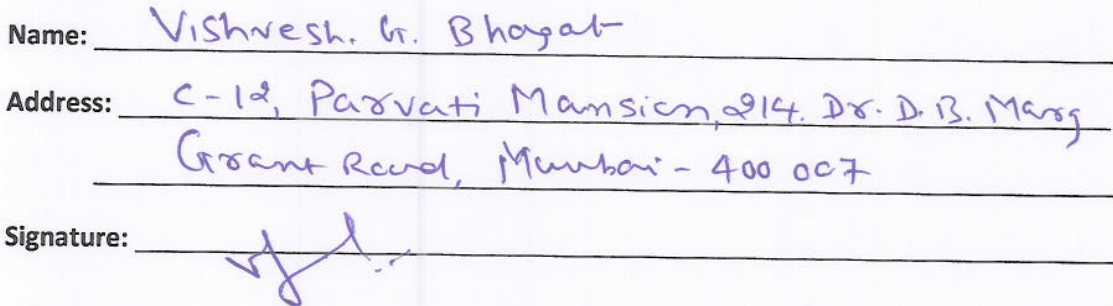 Name: Vishvesh. G. Bhagat
Address: C-12, Parvati Mansion, 214. Dr. D. B. Marg
Grant Road, Mumbai - 400 007
Signature: